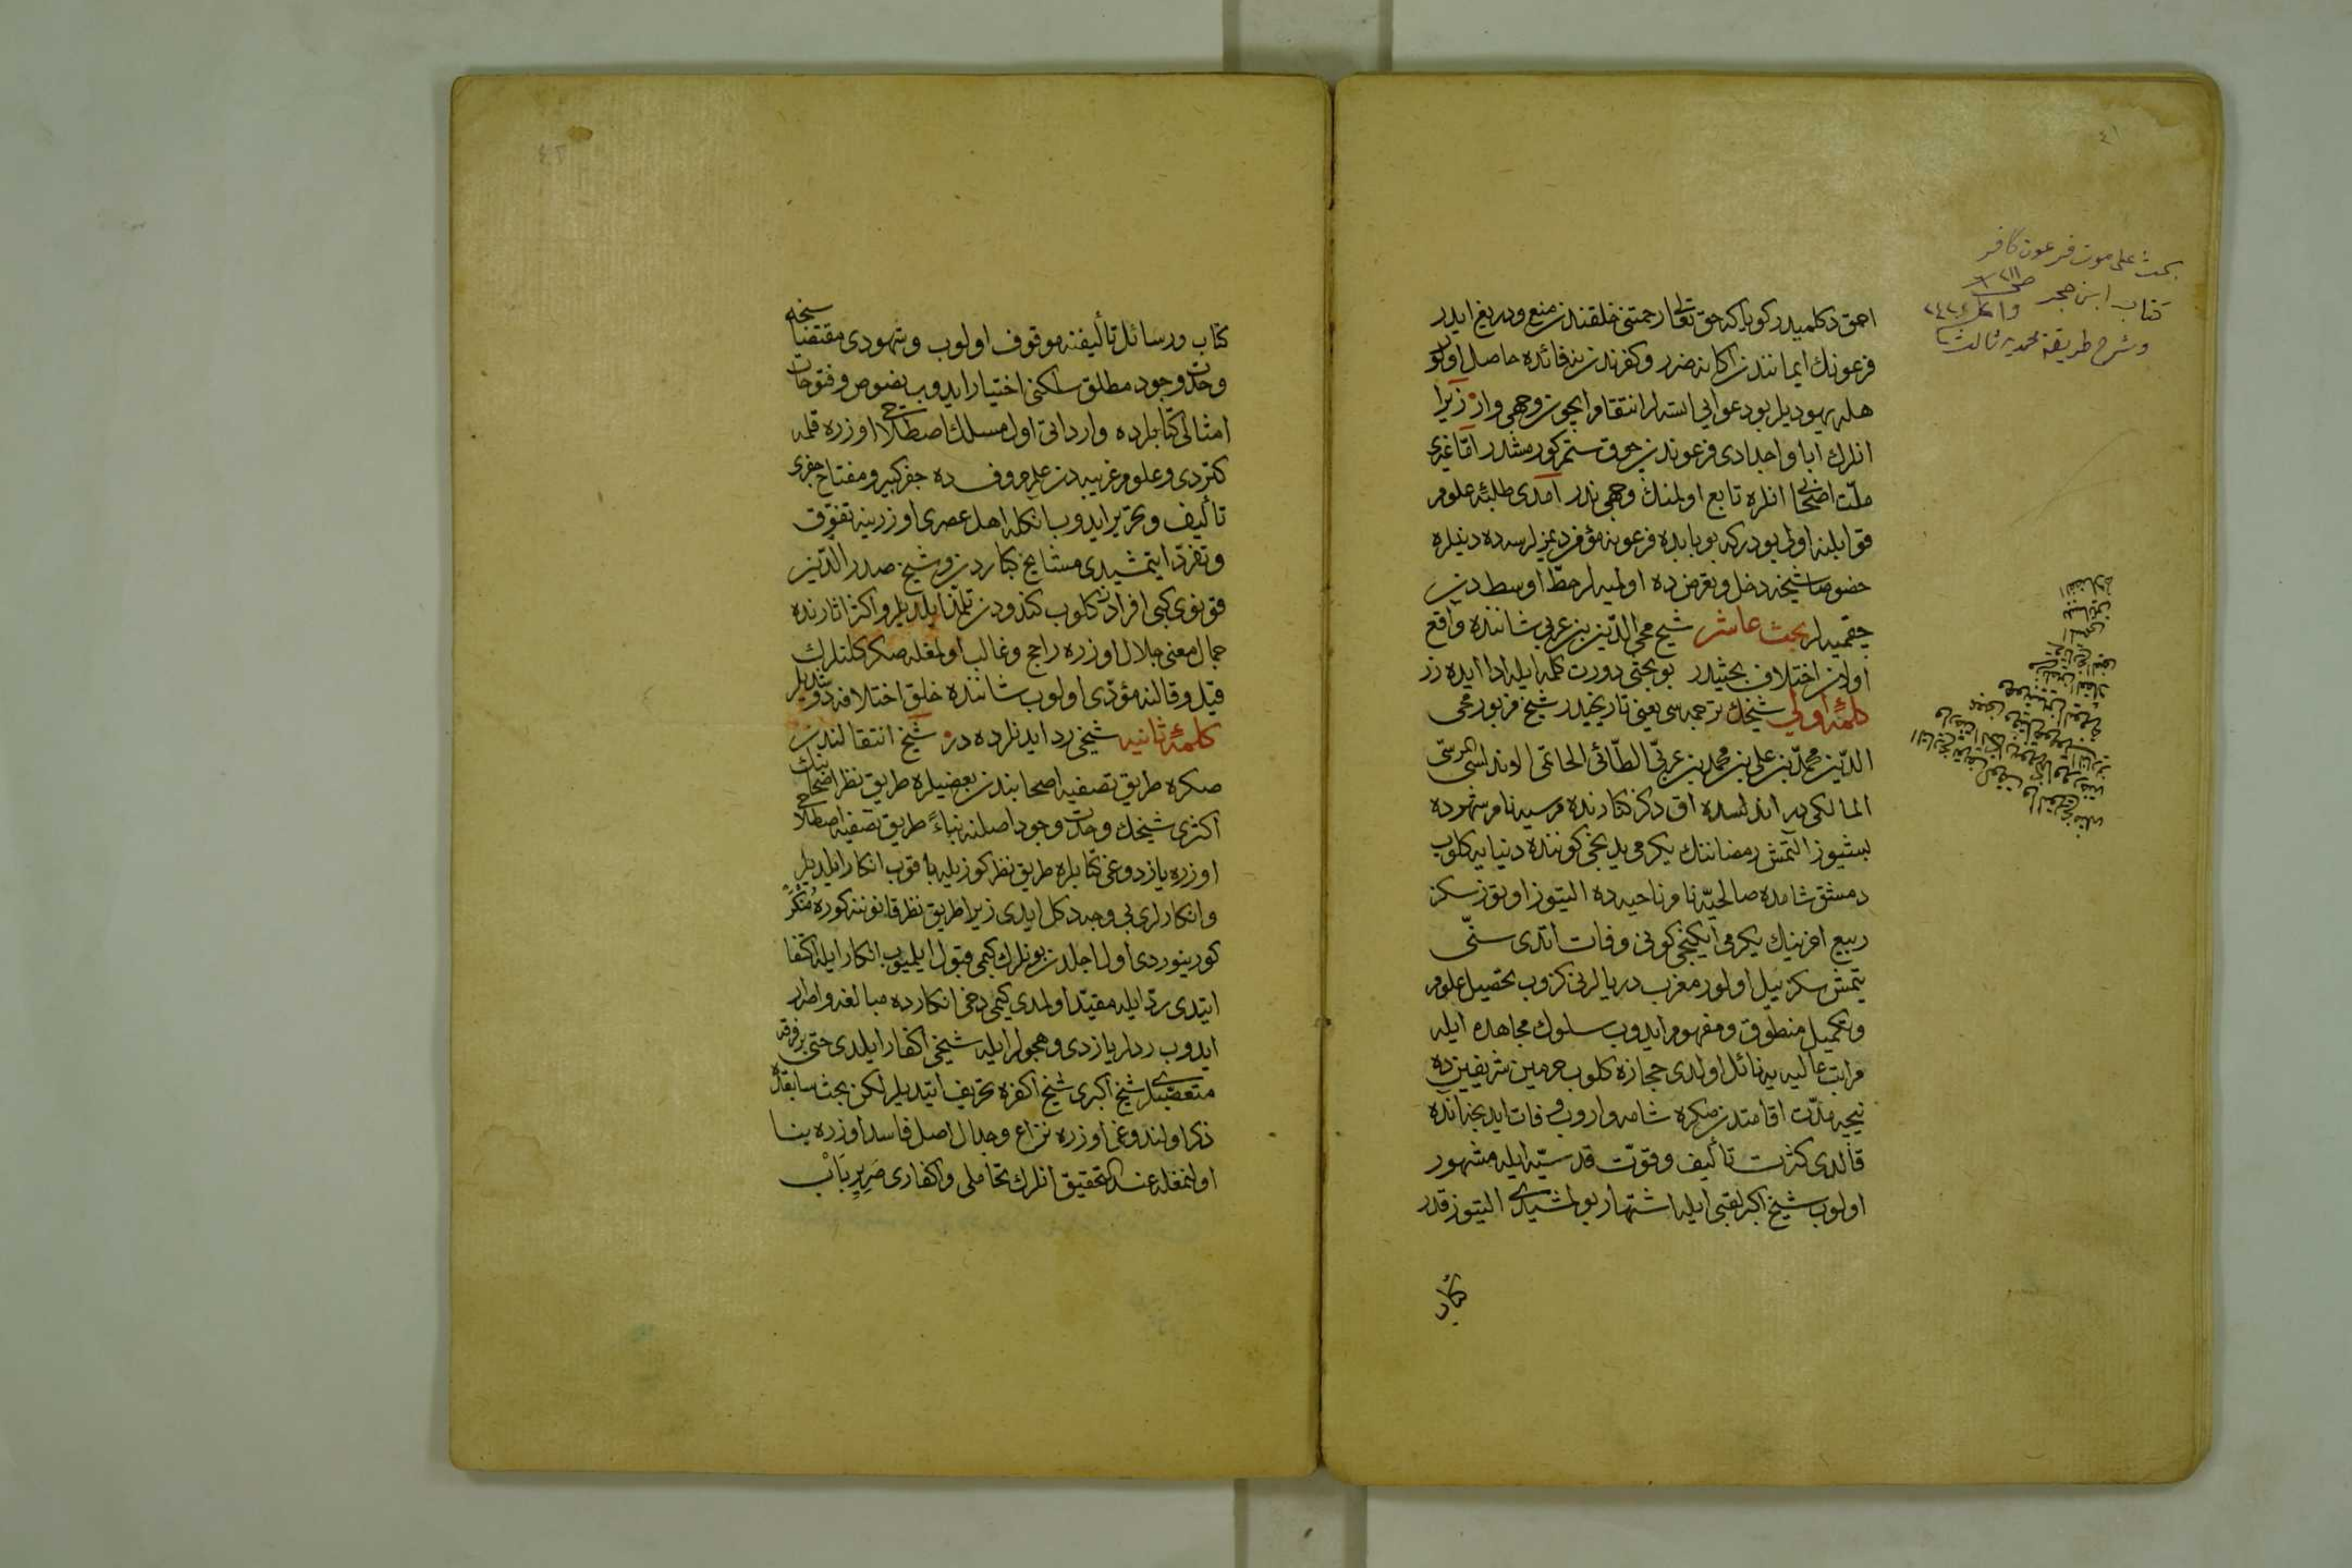 ٤١
بحث على موت فرعون كافر
كتاب ابن حجر
وشرح طريقة محمديه ثالث
احمق دكلميدر كويا كه حق تعالى رحمتنى خلقندن منع ودريغ ايدر
فرعونك ايمانندن اكا نه ضرر وكفرندن نه فائده حاصل اولور
هله يهوديلر بو دعوايى ايتسه لر انتقام ايچون وجهى وار زيرا
انلرك ابا واجدادى فرعوندن چوق ستم كورمشدر امّا غيرى
ملّت اصحابى انلره تابع اولمنك وجهى ندر امدى طلبهٔ علوم
قوابلنه اولى بودركه بو بابده فرعونه مؤمن ديمزلرسه ده دينلره
خصوصا شيخه دخل وتعرض ده اولميه لر حطّ اوسط دن
چقميه لر بحث عاشر شيخ محى الدّين بن عربى شاننده واقع
اولان اختلاف بحثيدر بو بحثى دورت كلمه ايله ادا ايده رز
كلمهٔ اولى شيخك ترجمه سى يعنى تاريخيدر شيخ مزبور محى
الدّين محمّد بن على بن محمد بن عربىّ الطّائى الحاتمى الاندلسى
المالكى در اندلسده اق دكز كنارنده مرسيه نام شهرده
بشيوز التمش رمضاننك يكرمى يدنجى كوننده دنيايه كلوب
دمشق شامده صالحيّه نام ناحيه ده التيوز اوتوز سكز
ربيع اخرينك يكرمى ايكنجى كونى وفات ايتدى سنّى
يتمش سكز ييل اولور مغرب ديارلرنى كزوب تحصيل علوم
وتكميل منطوق ومفهوم ايدوب سلوك مجاهده ايله
مراتب عاليه يه نائل اولدى حجازه كلوب حرمين شريفين ده
نيجه مدّت اقامتدن صكره شامه واروب وفات ايدنجه انده
قالدى كثرت تأليف وقوّت قدسيّه ايله مشهور
اولوب شيخ اكبر لقبى ايله اشتهار بولمشيدى التيوز قدر
كتاب
٤٢
كتاب ورسائل تأليفنه موفق اولوب وشهودى مقتضاسنجه
وحدت وجود مطلق مسلكنى اختيار ايدوب فصوص وفتوحات
امثالى كتابلرده وارداتى اول مسلك اصطلاحى اوزره قلمه
كتردى وعلوم غريبه دن علم حروف ده جفر كبير ومفتاح جفرى
تأليف وتحرير ايدوب انكله اهل عصرى اوزرينه تفوّق
وتفرّد ايتمشيدى مشايخ كباردن شيخ صدر الدّين
قونوى كبى افراد كلوب كندودن تلمّذ ايلديلر واكثر اثارنده
جمال معنى جلال اوزره راجح وغالب اولمغله صكره كلنلرك
قيل وقالنه مؤدّى اولوب شاننده خلق اختلافه دوشديلر
كلمهٔ ثانيه شيخى رد ايدنلرده در شيخ انتقالندن
صكره طريق تصفيه اصحابندن بعضيلره طريق نظر اصحابنك
اكثرى شيخك وحدت وجود اصلنه بناءً طريق تصفيه اصطلاحى
اوزره يازدوغى كتابلره طريق نظر كوزيله باقوب انكار ايلديلر
وانكارلرى بى وجه دكل ايدى زيرا طريق نظر قانوننه كوره مُنكَر
كورينوردى اول اجلدن بونلرك كيمى قبول ايلميوب انكار ايله اكتفا
ايتدى ردّ ايله مقيّد اولمدى كيمى دخى انكارده مبالغه واصرار
ايدوب ردلر يازدى وهجولر ايله شيخى اكفار ايلدى حتى بر فرقه
متعصّبلر شيخ اكبرى شيخ اكفره تحريف ايتديلر لكن بحث سابقده
ذكر اولندوغى اوزره نزاع وجدال اصل فاسد اوزره بنا
اولنمغله عند التحقيق انلرك تحاملى واكفارى صَرِيرِ بَابْ